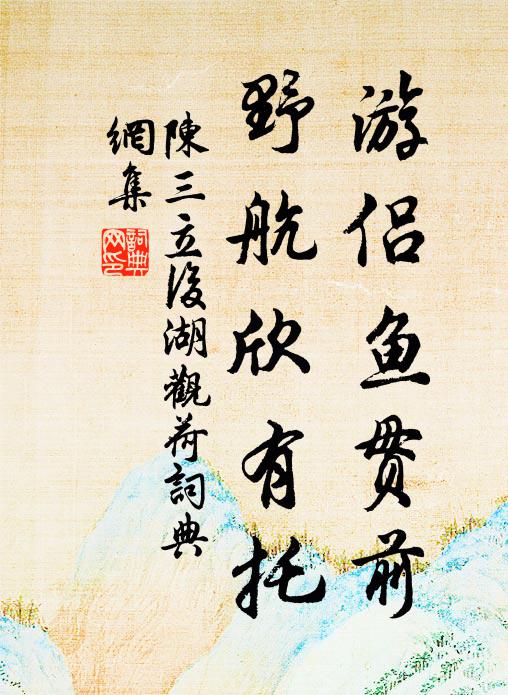 游侣鱼贯前
野航欣有托
陳三立后湖觀荷詞典
網集
詞典網印